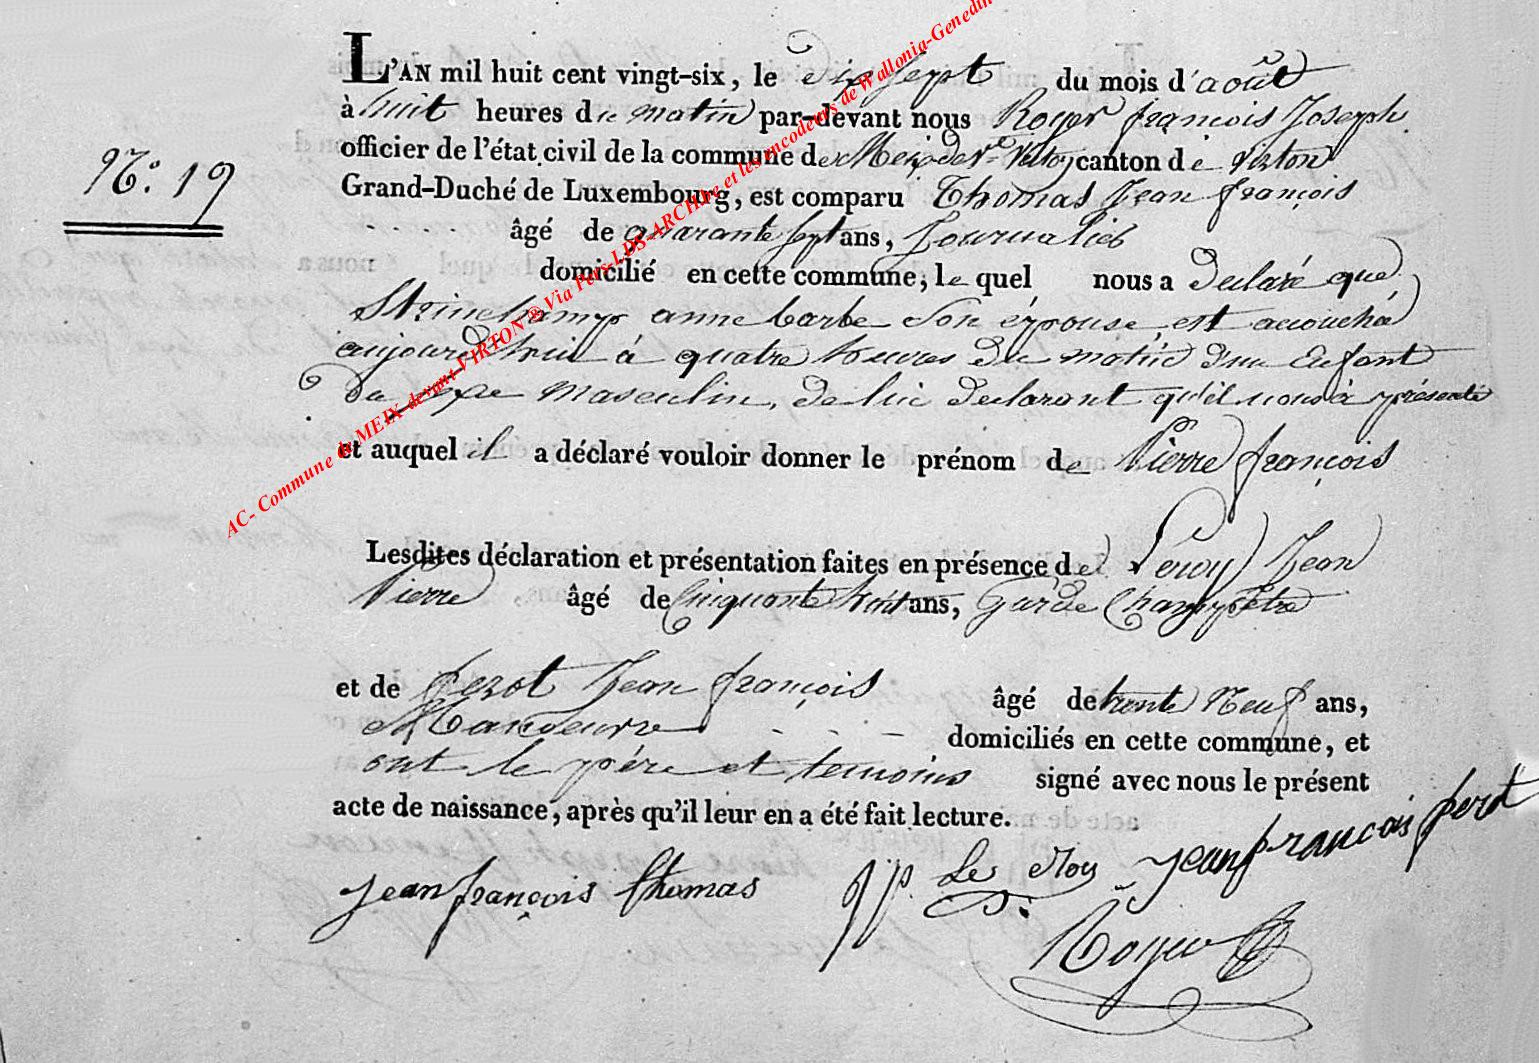 L'AN mil huit cent vingt-six, le dix sept du mois d'août
à huit heures du matin par-devant nous Royer françois Joseph
officier de l'état civil de la commune de Meix devt Virton canton de virton
N.° 19
Grand-Duché de Luxembourg, est comparu Thomas Jean françois
âgé de quarante sept ans, Journalier
domicilié en cette commune, le quel nous a declaré que
anne barbe Son épouse est accouchée
aujourd'hui à quatre heures du matin d'un Enfant
du sexe masculin, de lui declarant qu'il nous a présenté
et auquel il a déclaré vouloir donner le prénom de Pierre françois
Lesdites déclaration et présentation faites en présence de Leroy Jean
Pierre âgé de Cinquante huit ans, Garde Champetre
et de perot Jean françois âgé de trente Neuf ans,
Manoeuvre domiciliés en cette commune, et
ont le père et temoins signé avec nous le présent
acte de naissance, après qu'il leur en a été fait lecture.
Jean françois thomas jp Le Roy jean francois perot
Royer
AC- Commune de MEIX-devant-VIRTON ® Via Pers-LDS-ARCHive et les encodeurs de Wallonia-Genedin